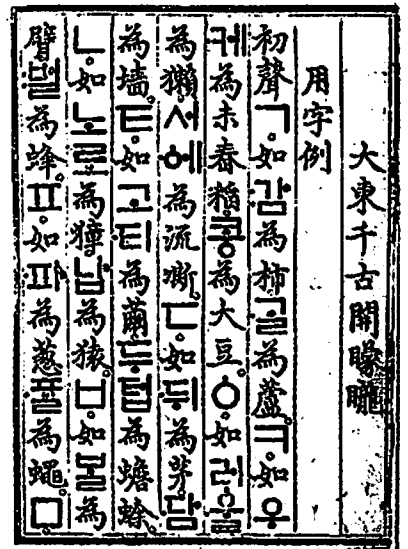 大東千古開矇矓
用字例
初聲ㄱ。如감為柿。ᄀᆞᆯ為蘆。ㅋ。如우
케為未舂稻。콩為大豆。ㆁ。如러울
為獺。서ᅌᅦ為流凘。ㄷ。如뒤為茅。담
為墻。ㅌ。如고티為繭。두텁為蟾蜍。
ㄴ。如노로為獐。납為猿。ㅂ。如ᄇᆞᆯ為
臂。벌為蜂。ㅍ。如파為葱。ᄑᆞᆯ為蠅。ㅁ